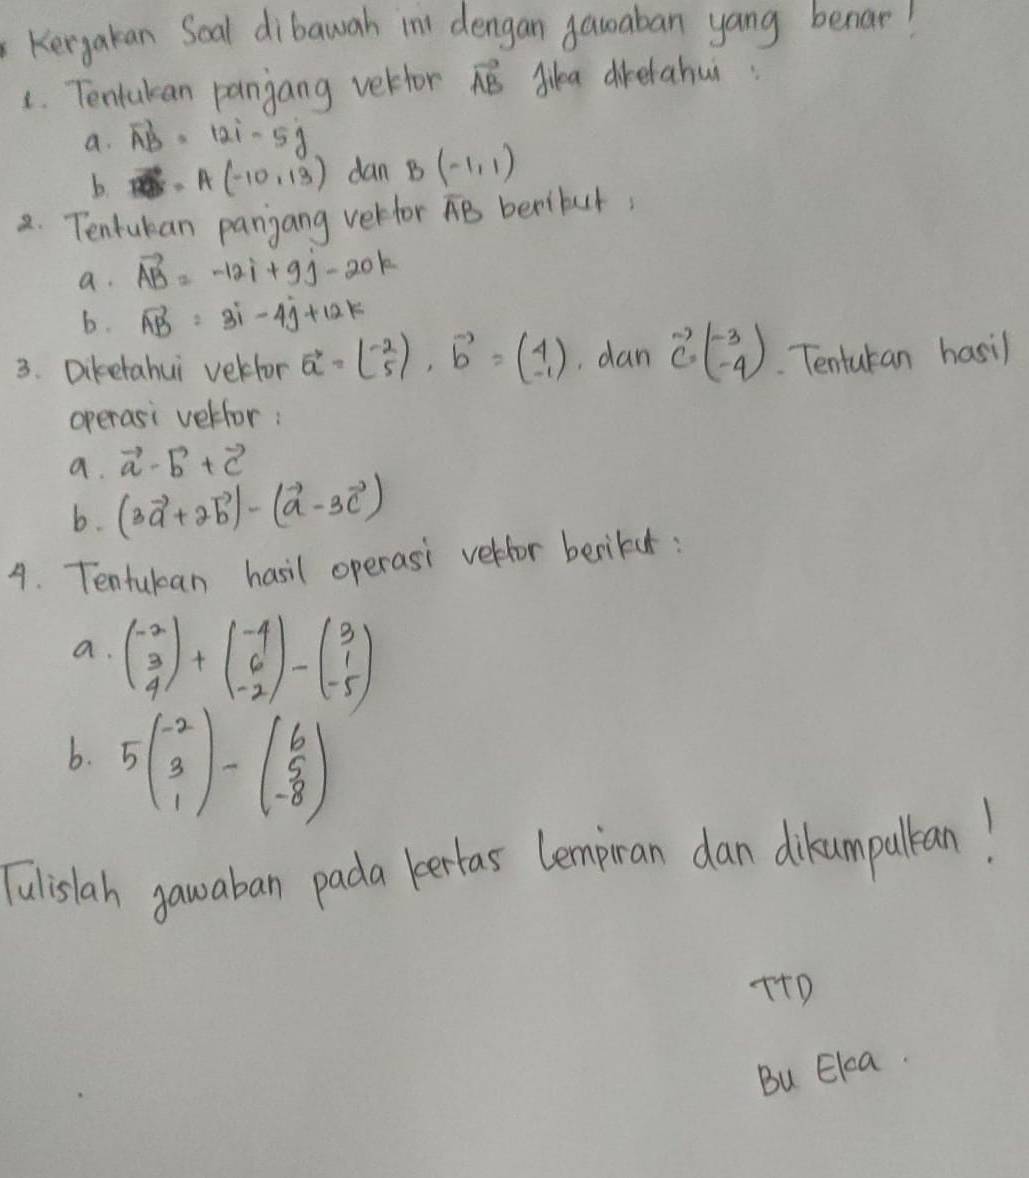 Kerjakan Soal dibawah ini dengan jawaban yang benar!
1. Tentukan panjang vektor AB⃗ Jika diketahui :
a. AB⃗ = 12i - 5j
b. = A (-10, 13) dan B (-1, 1)
2. Tentukan panjang vektor AB berikut :
a. AB⃗ = -12i + 9j - 20k
b. AB⃗ = 3i - 4j + 12k
3. Diketahui vektor a⃗ = (-2 5), b⃗ = (4 -1), dan c⃗ = (-3 -4). Tentukan hasil
operasi vektor :
a. a⃗ - b⃗ + c⃗
b. (3a⃗ + 2b⃗) - (a⃗ - 3c⃗)
4. Tentukan hasil operasi vektor berikut :
a. (-2 3 4) + (-4 6 -2) - (3 1 -5)
b. 5 (-2 3 1) - (6 5 -8)
Tulislah jawaban pada kertas lempiran dan dikumpulkan!
TTD
Bu Eka.